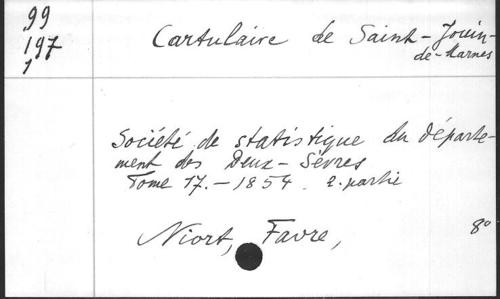 99
197
1
Cartulaire de Saint-Jouin-
de-Marnes
Société de statistique du départe-
ment des Deux-Sèvres
Tome 17. - 1854. 2. partie
Niort, Favre,
8°